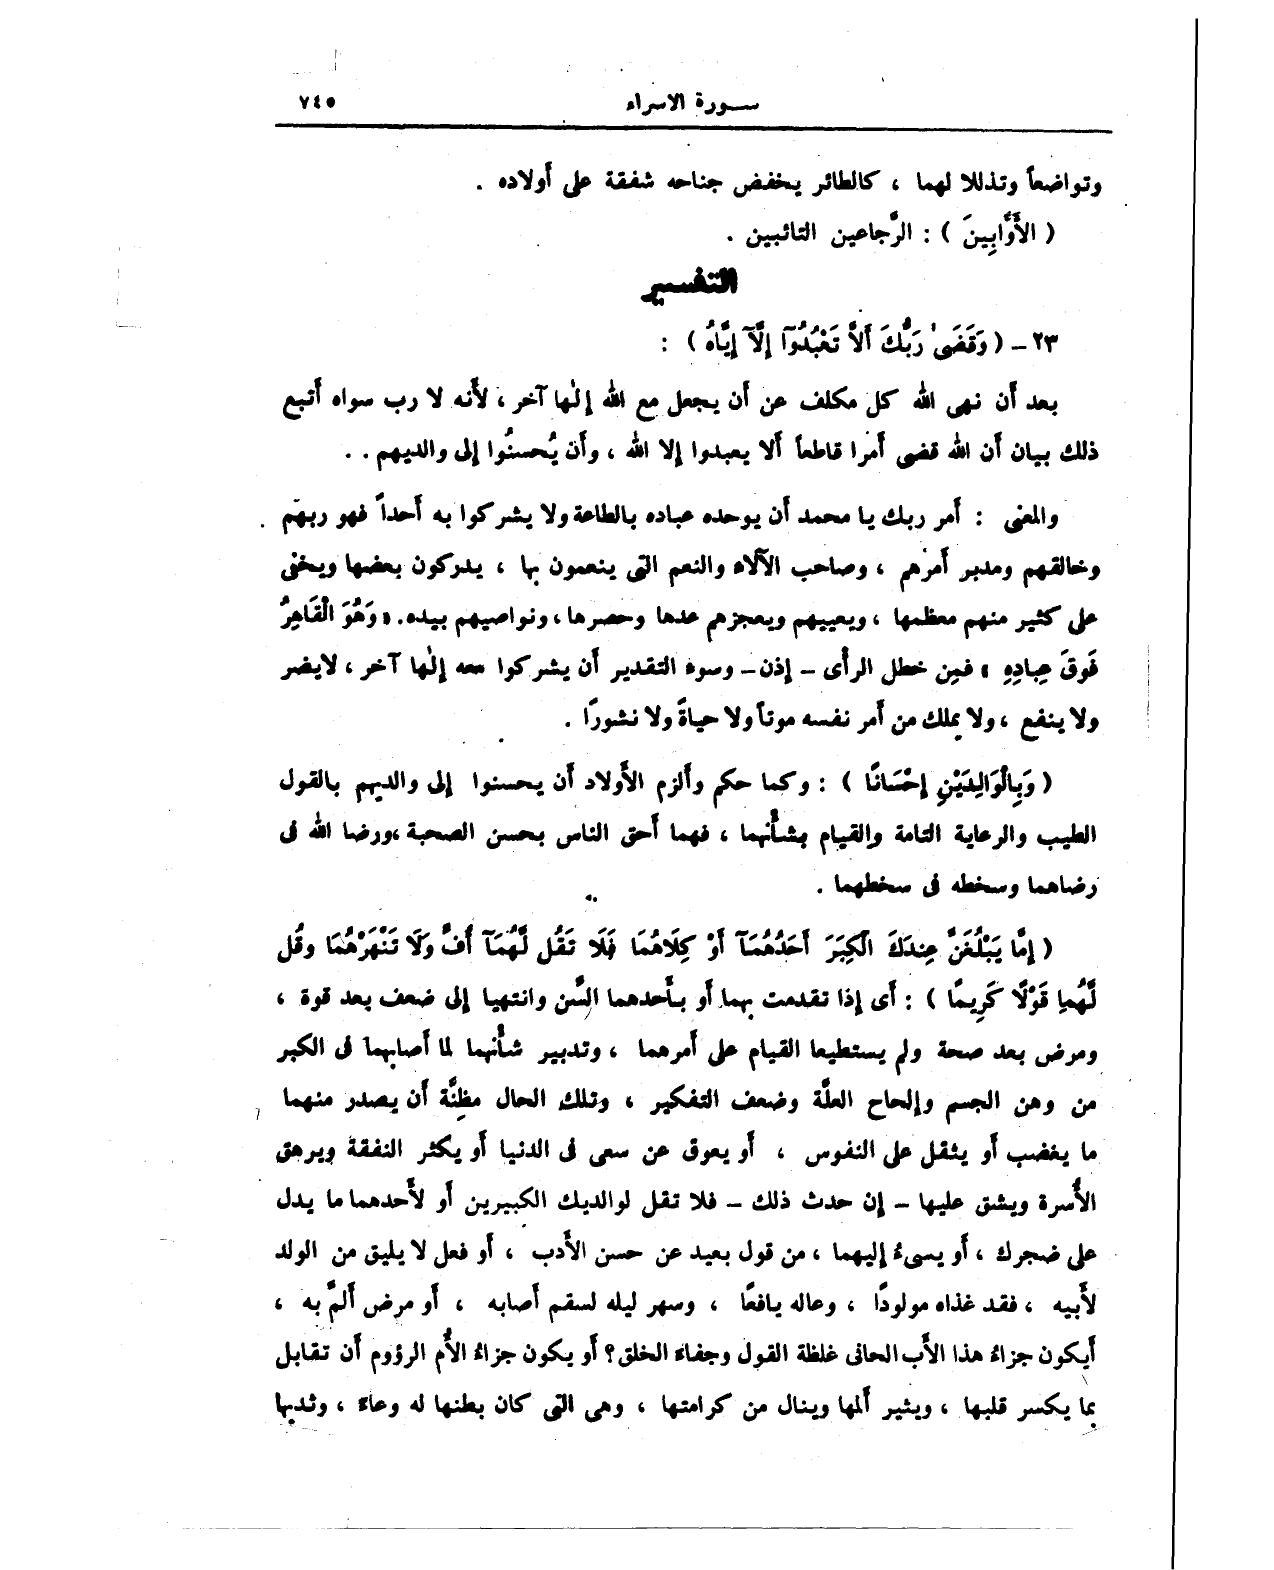 سورة الاسراء ٧٤٥
وتواضعاً وتذللا لهما ، كالطائر يخفض جناحه شفقة على أولاده .
( الأَوَّابِينَ ) : الرَّجاعين التائبين .
التفسير
٢٣ – ( وَقَضَىٰ رَبُّكَ أَلاَّ تَعْبُدُوٓا إِلَّآ إِيَّاهُ ) :
بعد أن نهى الله كل مكلف عن أن يجعل مع الله إلٰهاً آخر ، لأَنه لا رب سواه أَتبع
ذلك ببيان أن الله قضى أمرا قاطعاً ألا يعبدوا إلا الله ، وأَن يُحسنُوا إلى والديهم . .
والمعنى : أَمر ربك يا محمد أن يوحده عباده بالطاعة ولا يشركوا به أَحداً فهو ربهم
وخالقهم ومدبر أمرهم ، وصاحب الآلاء والنعم التى ينعمون بها ، يدركون بعضها ويخفى
على كثير منهم معظمها ، ويعييهم ويعجزهم عدها وحصرها ، ونواصيهم بيده . « وَهُوَ الْقَاهِرُ
فَوقَ عِبادِهِ » فمِن خطل الرأى – إذن – وسوء التقدير أَن يشركوا معه إلٰها آخر ، لا يضر
ولا ينفع ، ولا يملك من أمر نفسه موتاً ولا حياةً ولا نشورًا .
( وَبِالْوَالِدَيْنِ إِحْسَانًا ) : وكما حكم وألزم الأَولاد أن يحسنوا إلى والديهم بالقول
الطيب والرعاية التامة والقيام بشأْنهما ، فهما أحق الناس بحسن الصحبة ، ورضا الله فى
رضاهما وسخطه فى سخطهما .
( إِمَّا يَبْلُغَنَّ عِندَكَ الْكِبَرَ أَحَدُهُمَآ أَوْ كِلَاهُمَا فَلَا تَقُل لَّهُمَآ أُفٍّ وَلَا تَنْهَرْهُمَا وقُل
لَّهُما قَوْلًا كَرِيمًا ) : أَى إذا تقدمت بهما أو بأَحدهما السِّن وانتهيا إلى ضعف بعد قوة ،
ومرض بعد صحة ولم يستطيعا القيام على أمرهما ، وتدبير شأْنهما لما أصابهما فى الكبر
من وهن الجسم وإلحاح العلَّة وضعف التفكير ، وتلك الحال مظِنَّة أن يصدر منهما
ما يغضب أو يثقل على النفوس ، أو يعوق عن سعى فى الدنيا أو يكثر النفقة ويرهق
الأُسرة ويشق عليها – إن حدث ذلك – فلا تقل لوالديك الكبيرين أو لأَحدهما ما يدل
على ضجرك ، أو يسىءُ إليهما ، من قول بعيد عن حسن الأَدب ، أو فعل لا يليق من الولد
لأَبيه ، فقد غذاه مولودًا ، وعاله يافعًا ، وسهر ليله لسقم أصابه ، أو مرض ألمَّ به ،
أَيكون جزاءُ هذا الأَب الحانى غلظة القول وجفاءَ الخلق ؟ أو يكون جزاءُ الأُم الرؤوم أن تقابل
بما يكسر قلبها ، ويثير ألمها وينال من كرامتها ، وهى التى كان بطنها له وعاءً ، وثديها